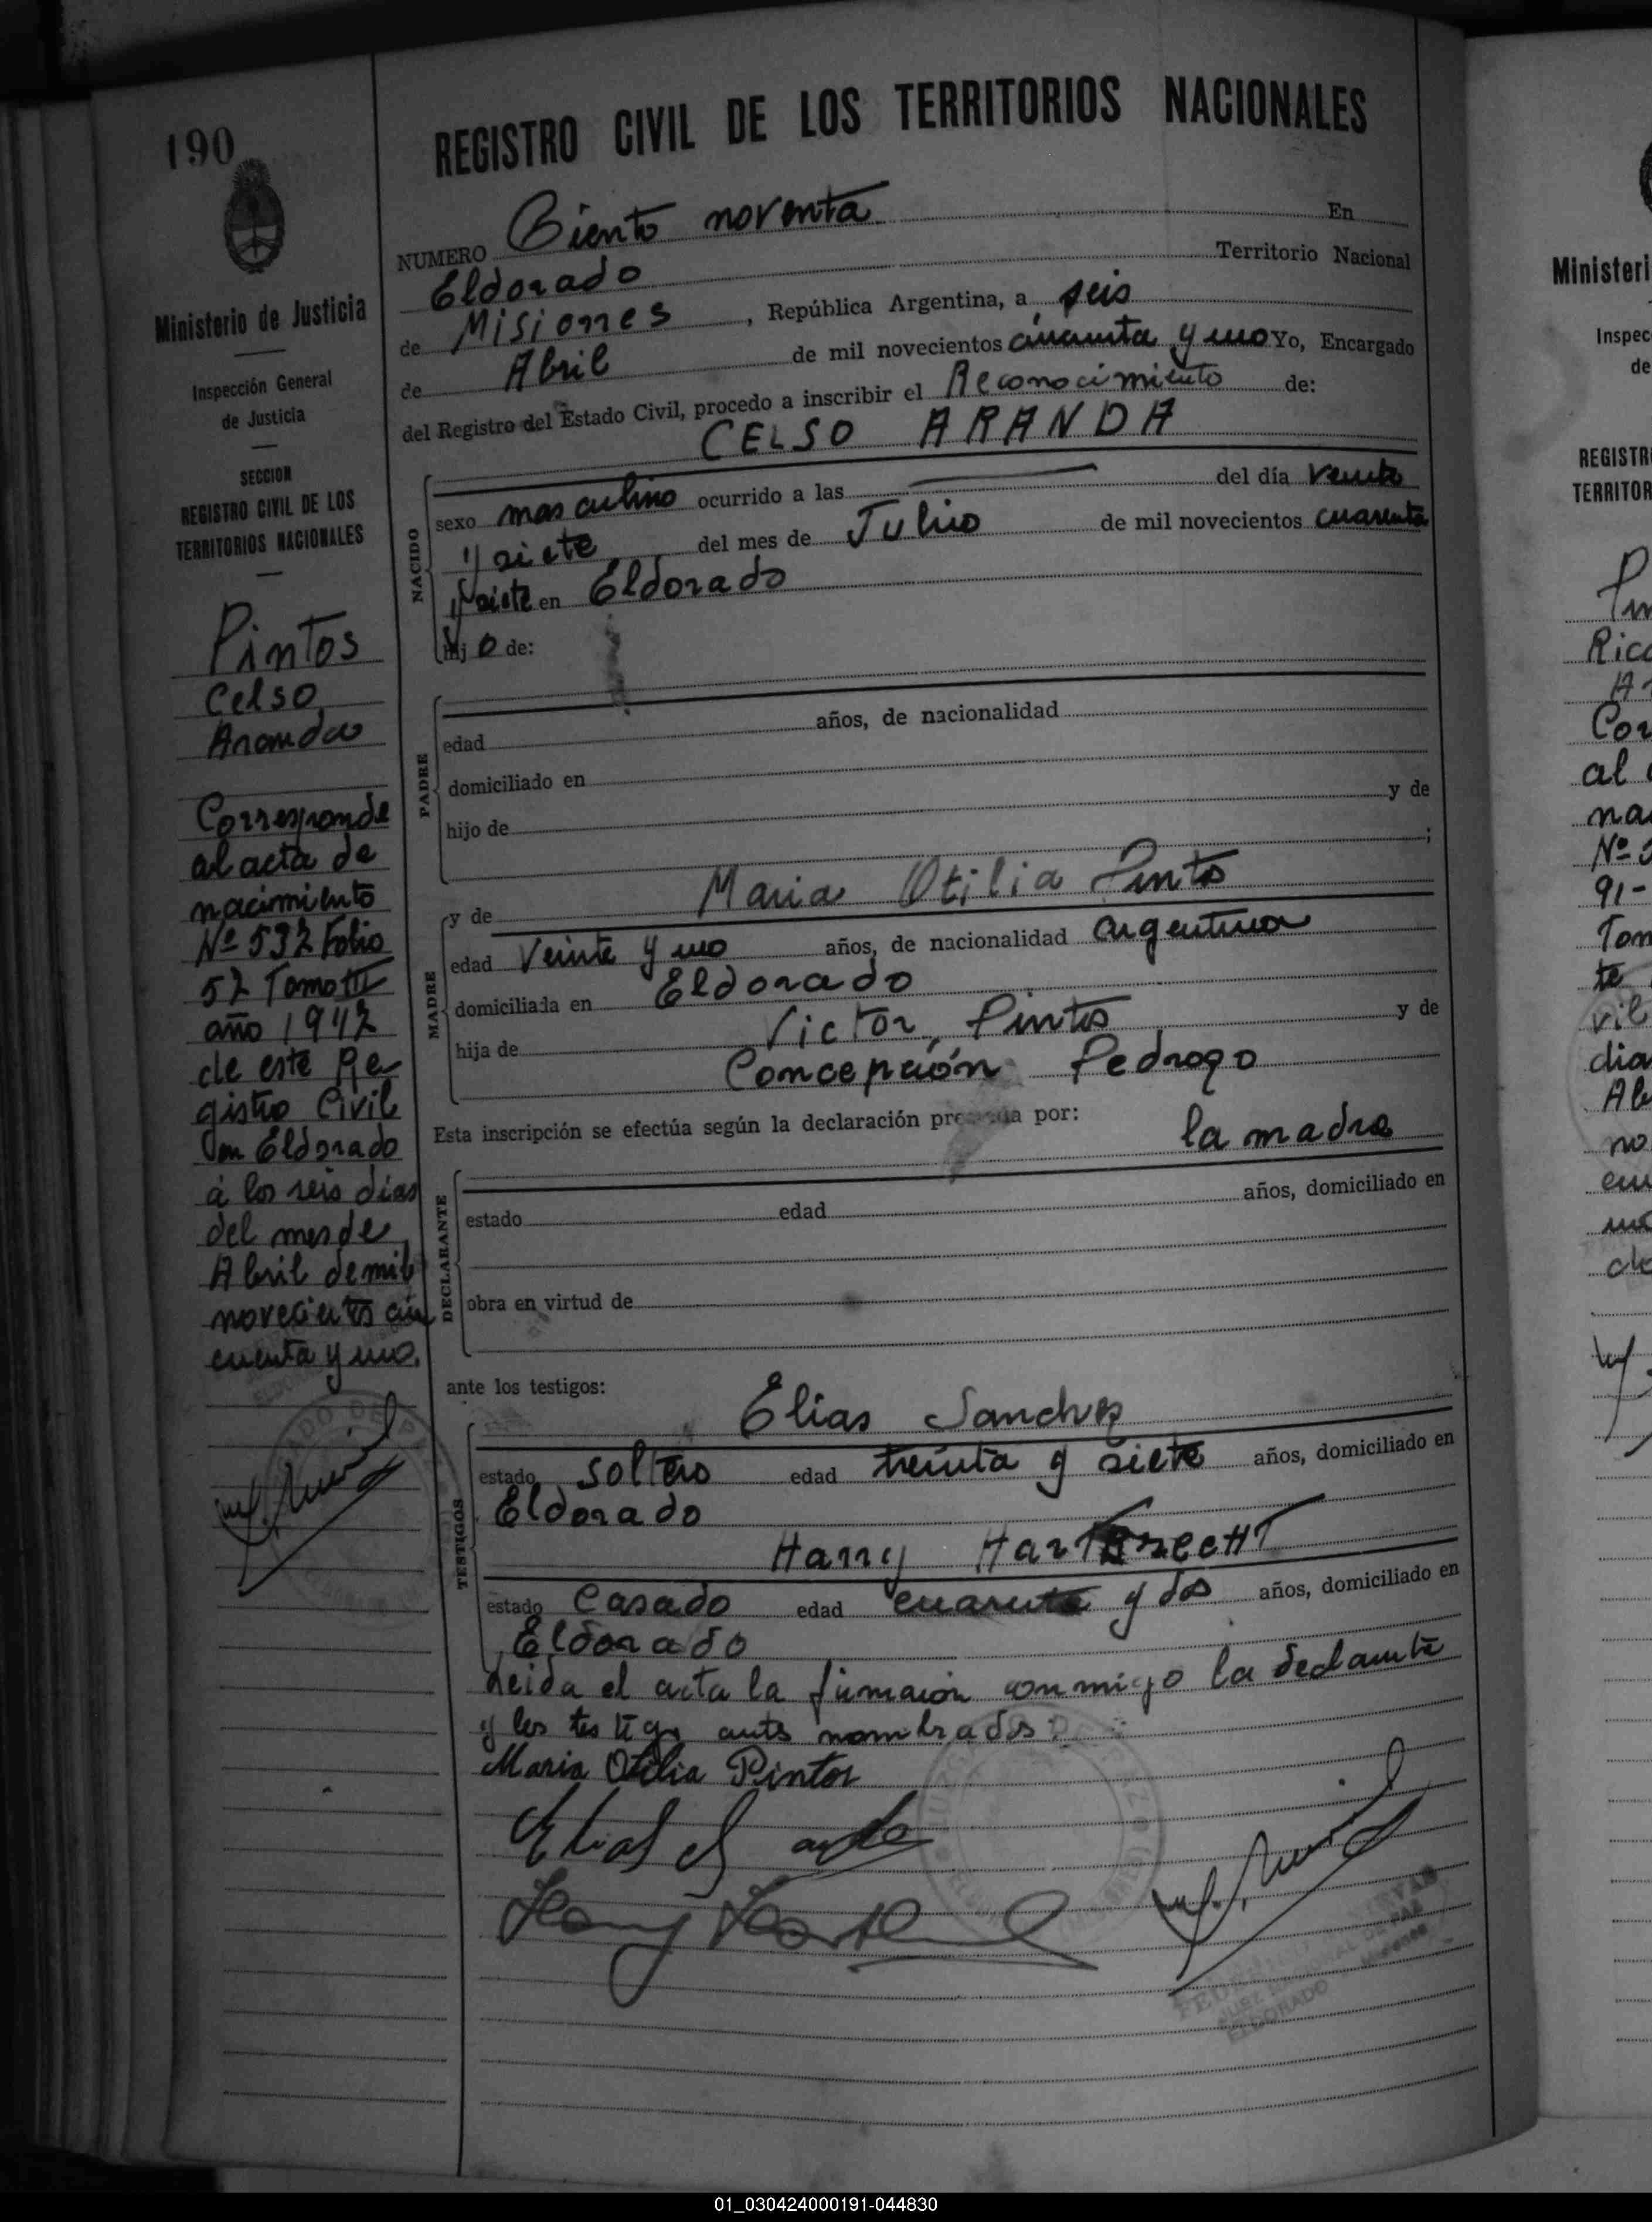 190
REGISTRO CIVIL DE LOS TERRITORIOS NACIONALES
NUMERO Ciento noventa En
Eldorado Territorio Nacional
de Misiones, República Argentina, a seis
de Abril de mil novecientos cincuenta y uno Yo, Encargado
del Registro del Estado Civil, procedo a inscribir el Reconocimiento de:
CELSO ARANDA
NACIDO
sexo masculino ocurrido a las del día veinte
y siete del mes de Julio de mil novecientos cuarenta
y siete en Eldorado
hijo de:
PADRE
edad años, de nacionalidad
domiciliado en
hijo de y de
;
MADRE
y de Maria Otilia Pintos
edad Veinte y uno años, de nacionalidad argentina
domiciliada en Eldorado
hija de Victor Pintos y de
Concepción Pedrozo
Esta inscripción se efectúa según la declaración por:
la madre
DECLARANTE
estado edad años, domiciliado en
obra en virtud de
ante los testigos:
TESTIGOS
Elias Sanchez
estado soltero edad treinta y siete años, domiciliado en
Eldorado
Harry
estado Casado edad cuarenta y dos años, domiciliado en
Eldorado
Leida el acta la firmaron conmigo la declarante
y los testigos antes nombrados:
Maria Otilia Pintos
Ministerio de Justicia
Inspección General
de Justicia
SECCION
REGISTRO CIVIL DE LOS
TERRITORIOS NACIONALES
Pintos
Celso
Aranda
Corresponde
al acta de
nacimiento
Nº 592 Folio
57 Tomo III
año 1947
de este Re
gistro Civil
en Eldorado
á los seis dias
del mes de
Abril de mil
novecientos cin
cuenta y uno.
ELDORADO
Ministeri
Inspec
de
REGISTR
TERRITOR
Ric
Cor
al
na
Nº
91-
Tom
te
vil
dia
Ab
no
01_030424000191-044830